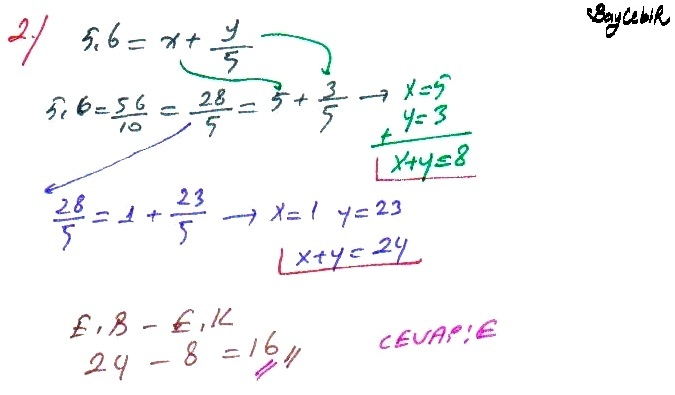 BayCebiR
2.) 5,6 = x + y/5
5,6 = 56/10 = 28/5 = 5 + 3/5 → x=5
y=3
+
x+y=8
28/5 = 1 + 23/5 → x=1 y=23
x+y = 24
E.B - E.K
24 - 8 = 16
CEVAP:E